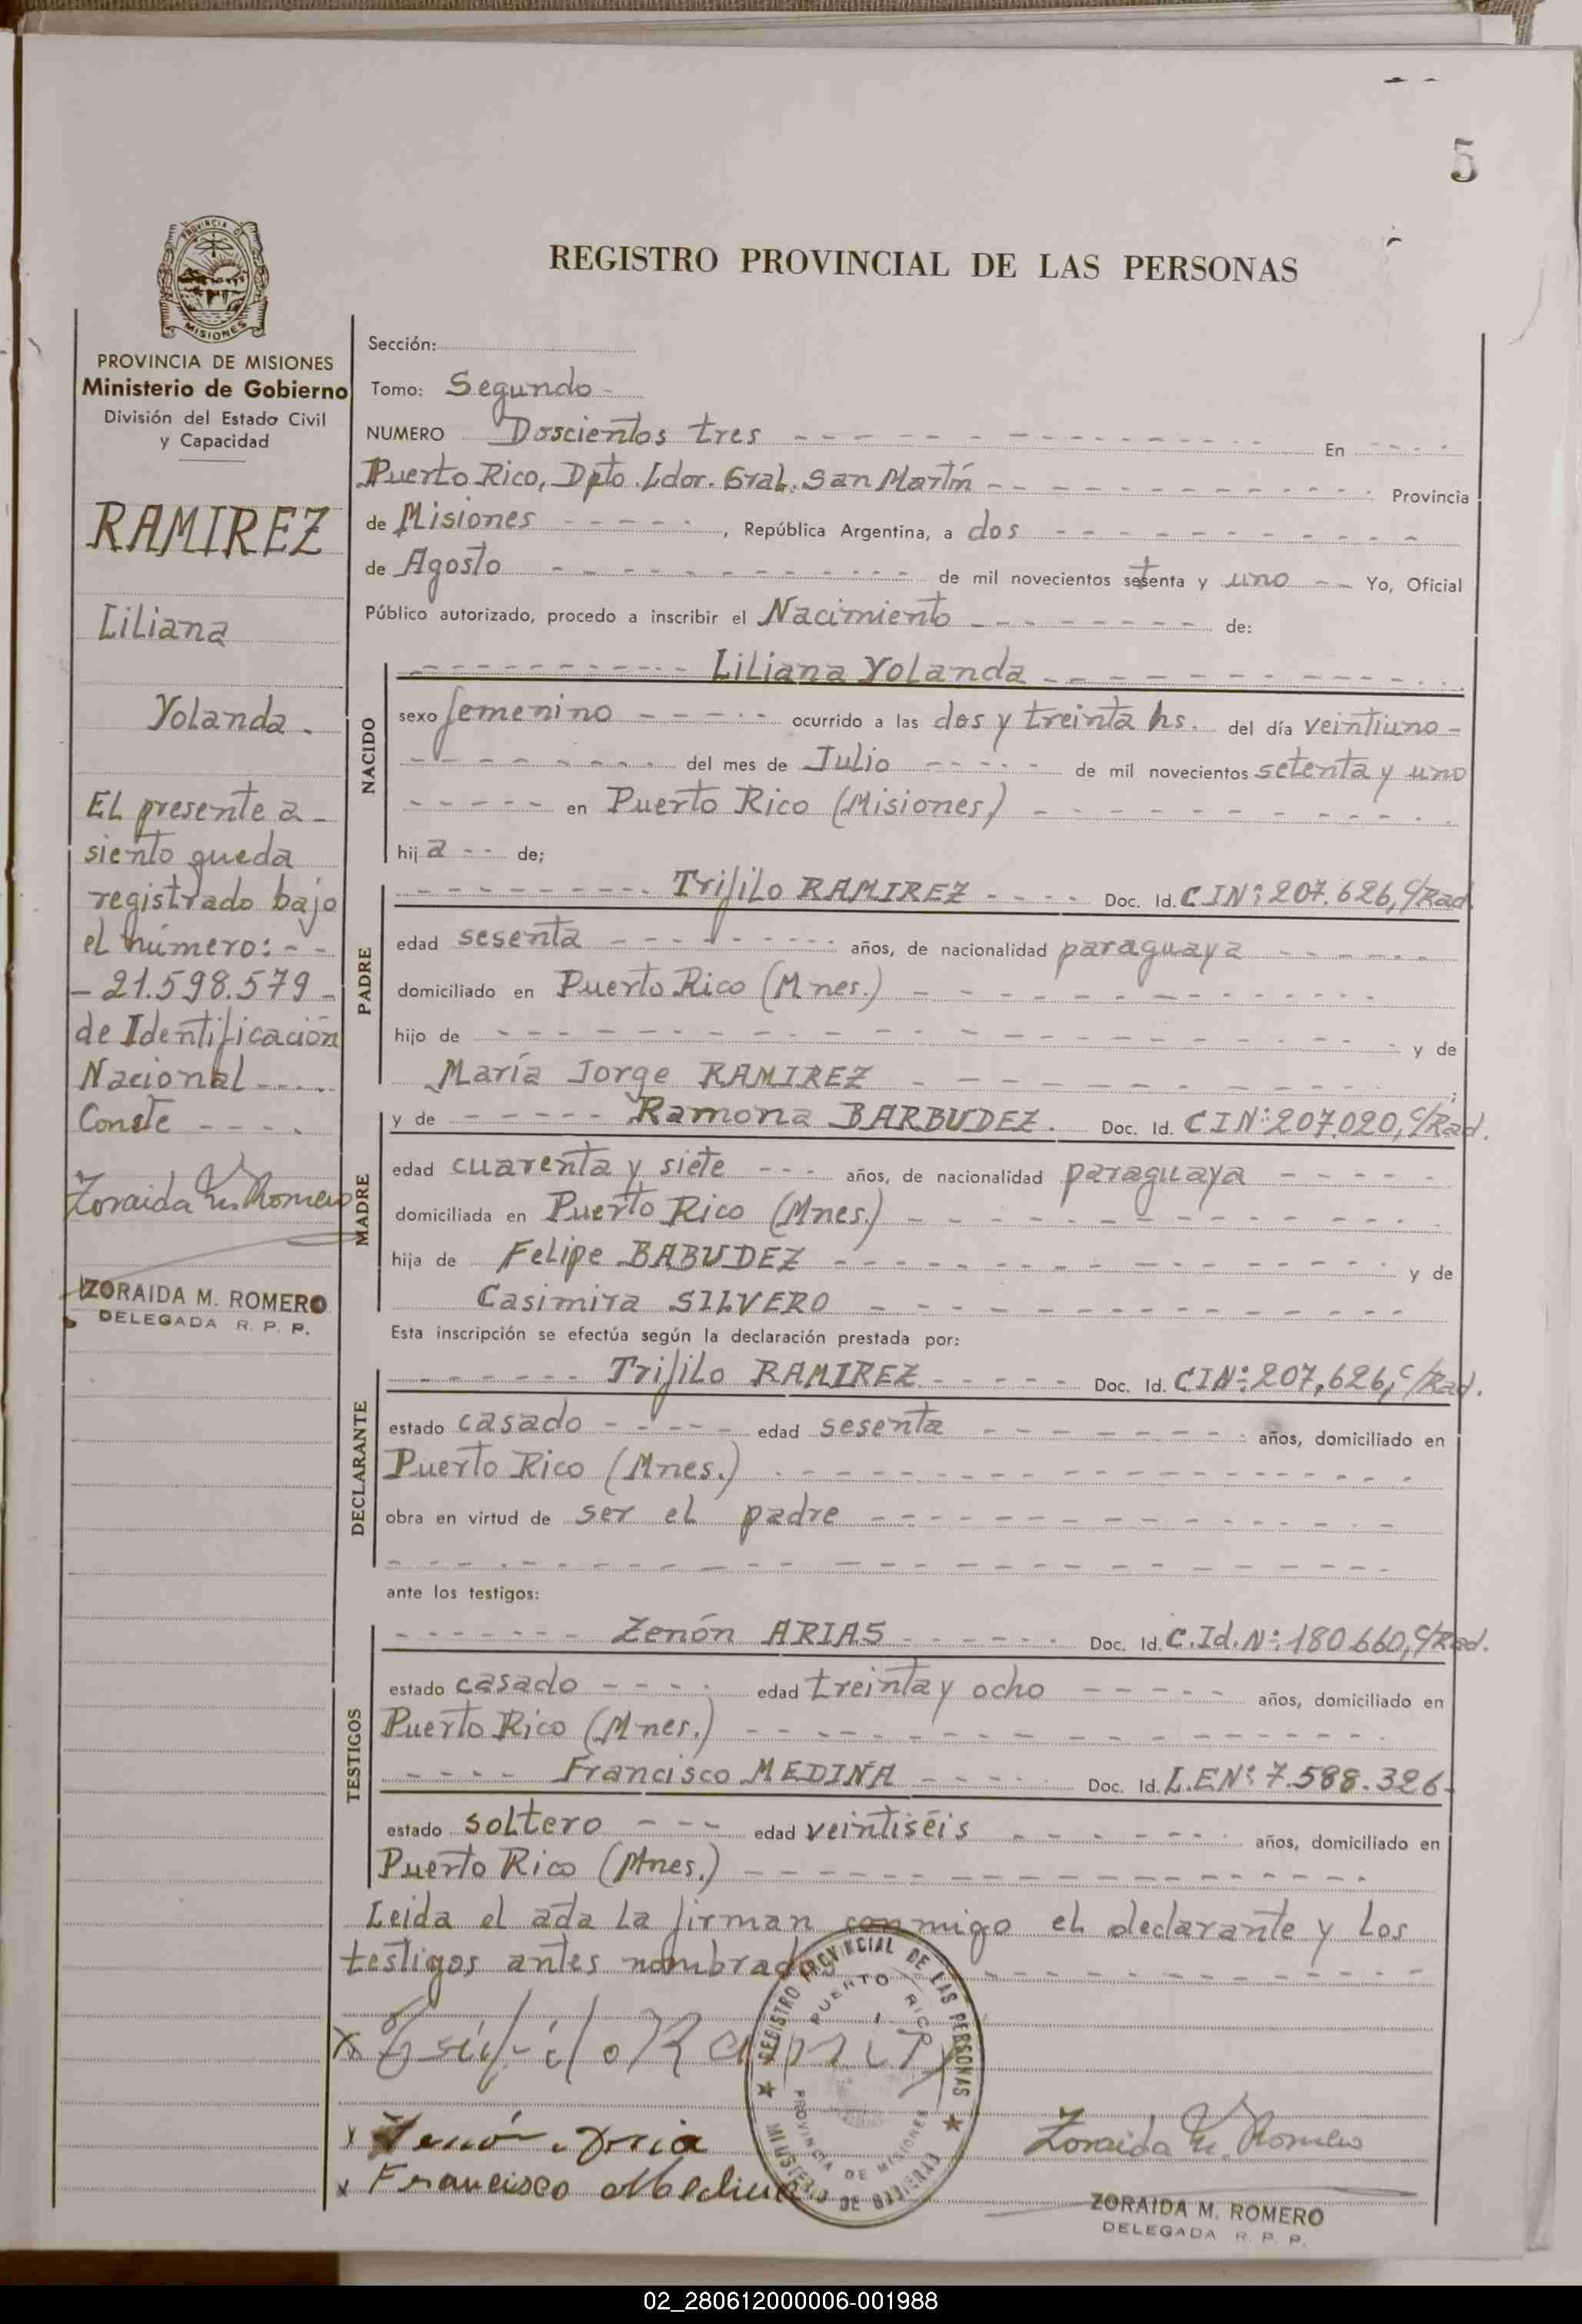 5
REGISTRO PROVINCIAL DE LAS PERSONAS
PROVINCIA DE
MISIONES
PROVINCIA DE MISIONES
Ministerio de Gobierno
División del Estado Civil
y Capacidad
RAMIREZ
Liliana
Yolanda.
El presente a-
siento queda
registrado bajo
el número: - -
- 21.598.579 -
de Identificación
Nacional - - - -
Conste - - - -
Zoraida M. Romero
ZORAIDA M. ROMERO
DELEGADA R. P. P.
Sección:
Tomo: Segundo -
NUMERO Doscientos tres - - - En - - -
Puerto Rico, Dpto. Ldor. Gral. San Martín - - - Provincia
de Misiones - - - , República Argentina, a dos - - -
de Agosto - - - de mil novecientos setenta y uno - - Yo, Oficial
Público autorizado, procedo a inscribir el Nacimiento - - - de:
NACIDO
- - - Liliana Yolanda - - -
sexo femenino - - - ocurrido a las dos y treinta hs. del día veintiuno -
- - - del mes de Julio - - - de mil novecientos setenta y uno
- - - en Puerto Rico (Misiones) - - -
hij a - - de;
PADRE
- - - Trifilo RAMIREZ - - - Doc. Id. CIN: 207.626, C/Rad.
edad sesenta - - - años, de nacionalidad paraguaya - - -
domiciliado en Puerto Rico (Mnes.) - - -
hijo de - - - y de
María Jorge RAMIREZ - - - ;
MADRE
y de - - - Ramona BARBUDEZ. Doc. Id. CIN: 207.020, C/Rad.
edad cuarenta y siete - - - años, de nacionalidad paraguaya - - -
domiciliada en Puerto Rico (Mnes.) - - -
hija de Felipe BABUDEZ - - - y de
Casimira SILVERO - - -
Esta inscripción se efectúa según la declaración prestada por:
DECLARANTE
- - - Trifilo RAMIREZ - - - Doc. Id. CIN: 207.626, C/Rad.
estado casado - - - edad sesenta - - - años, domiciliado en
Puerto Rico (Mnes.) - - -
obra en virtud de ser el padre - - -
ante los testigos:
TESTIGOS
- - - Zenón ARIAS - - - Doc. Id. C.Id.N: 180.660, C/Rad.
estado casado - - - edad treinta y ocho - - - años, domiciliado en
Puerto Rico (Mnes.) - - -
- - - Francisco MEDINA - - - Doc. Id. L.EN: 7.588.326-
estado soltero - - - edad veintiséis - - - años, domiciliado en
Puerto Rico (Mnes.) - - -
Leida el acta la firman conmigo el declarante y los
testigos antes nombrados - - -
REGISTRO PROVINCIAL DE LAS PERSONAS
PUERTO RICO
PROVINCIA DE MISIONES
MINISTERIO DE GOBIERNO
x Trifilo Ramirez
x Zenón Aria
x Francisco Medina
Zoraida M. Romero
ZORAIDA M. ROMERO
DELEGADA R. P. P.
02_280612000006-001988